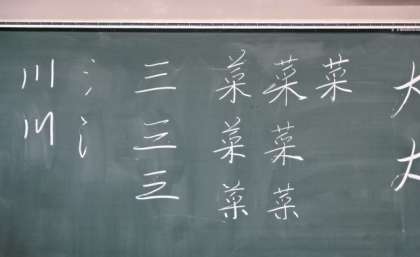 川 氵 三 菜 菜 菜 大
川 氵 三 菜 菜 大
三 菜 菜